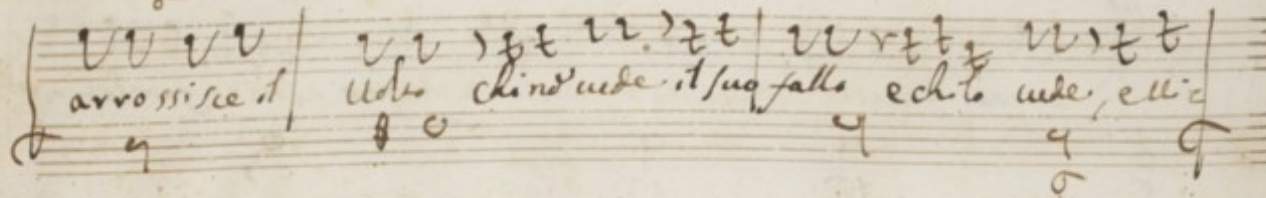 arrossisce il Uolto chi nol uede il suo fallo e chi lo uede, e lli